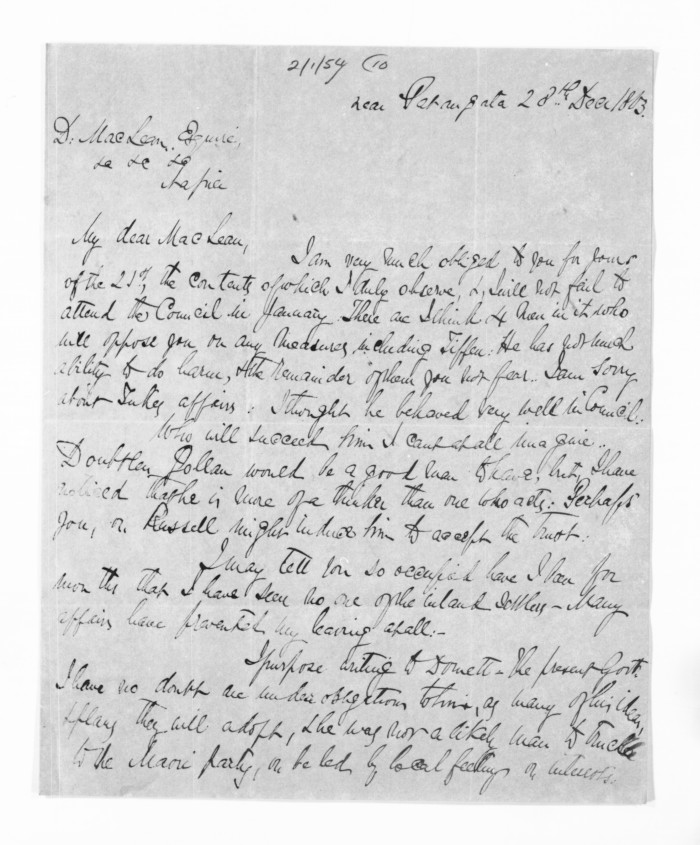 2/1/54 (10
near Patangata 28th Decr 1863.
D. MacLean Esquire,
&c &c &c
Napier
My dear MacLean,
I am very much obliged to you for yours
of the 21st, the contents of which I duly observe, & will not fail to
attend the Council in January. There are I think 4 men in it who
will oppose you on any measures, including Tiffen: He has not much
ability to do harm, & the remainder of them you not fear.. I am sorry
about Tukes affairs: I thought he behaved very well in Council:
Who will succeed him I cant at all imagine..
Doubtless Pollan would be a good man to have, but, I have
noticed that he is more of a thinker than one who acts: Perhaps
you, or Russell might induce him to accept the trust:
I may tell you so occupied have I been for
months that I have seen no one of the inland settlers - Many
affairs have prevented my leaving at all:-
I purpose writing to Domett - The present Govt.
I have no doubt are under obligations to him, as many of his ideas
& plans they will adopt, & he was not a likely man to truckle
to the Maori party, or be led by local feelings or interests.